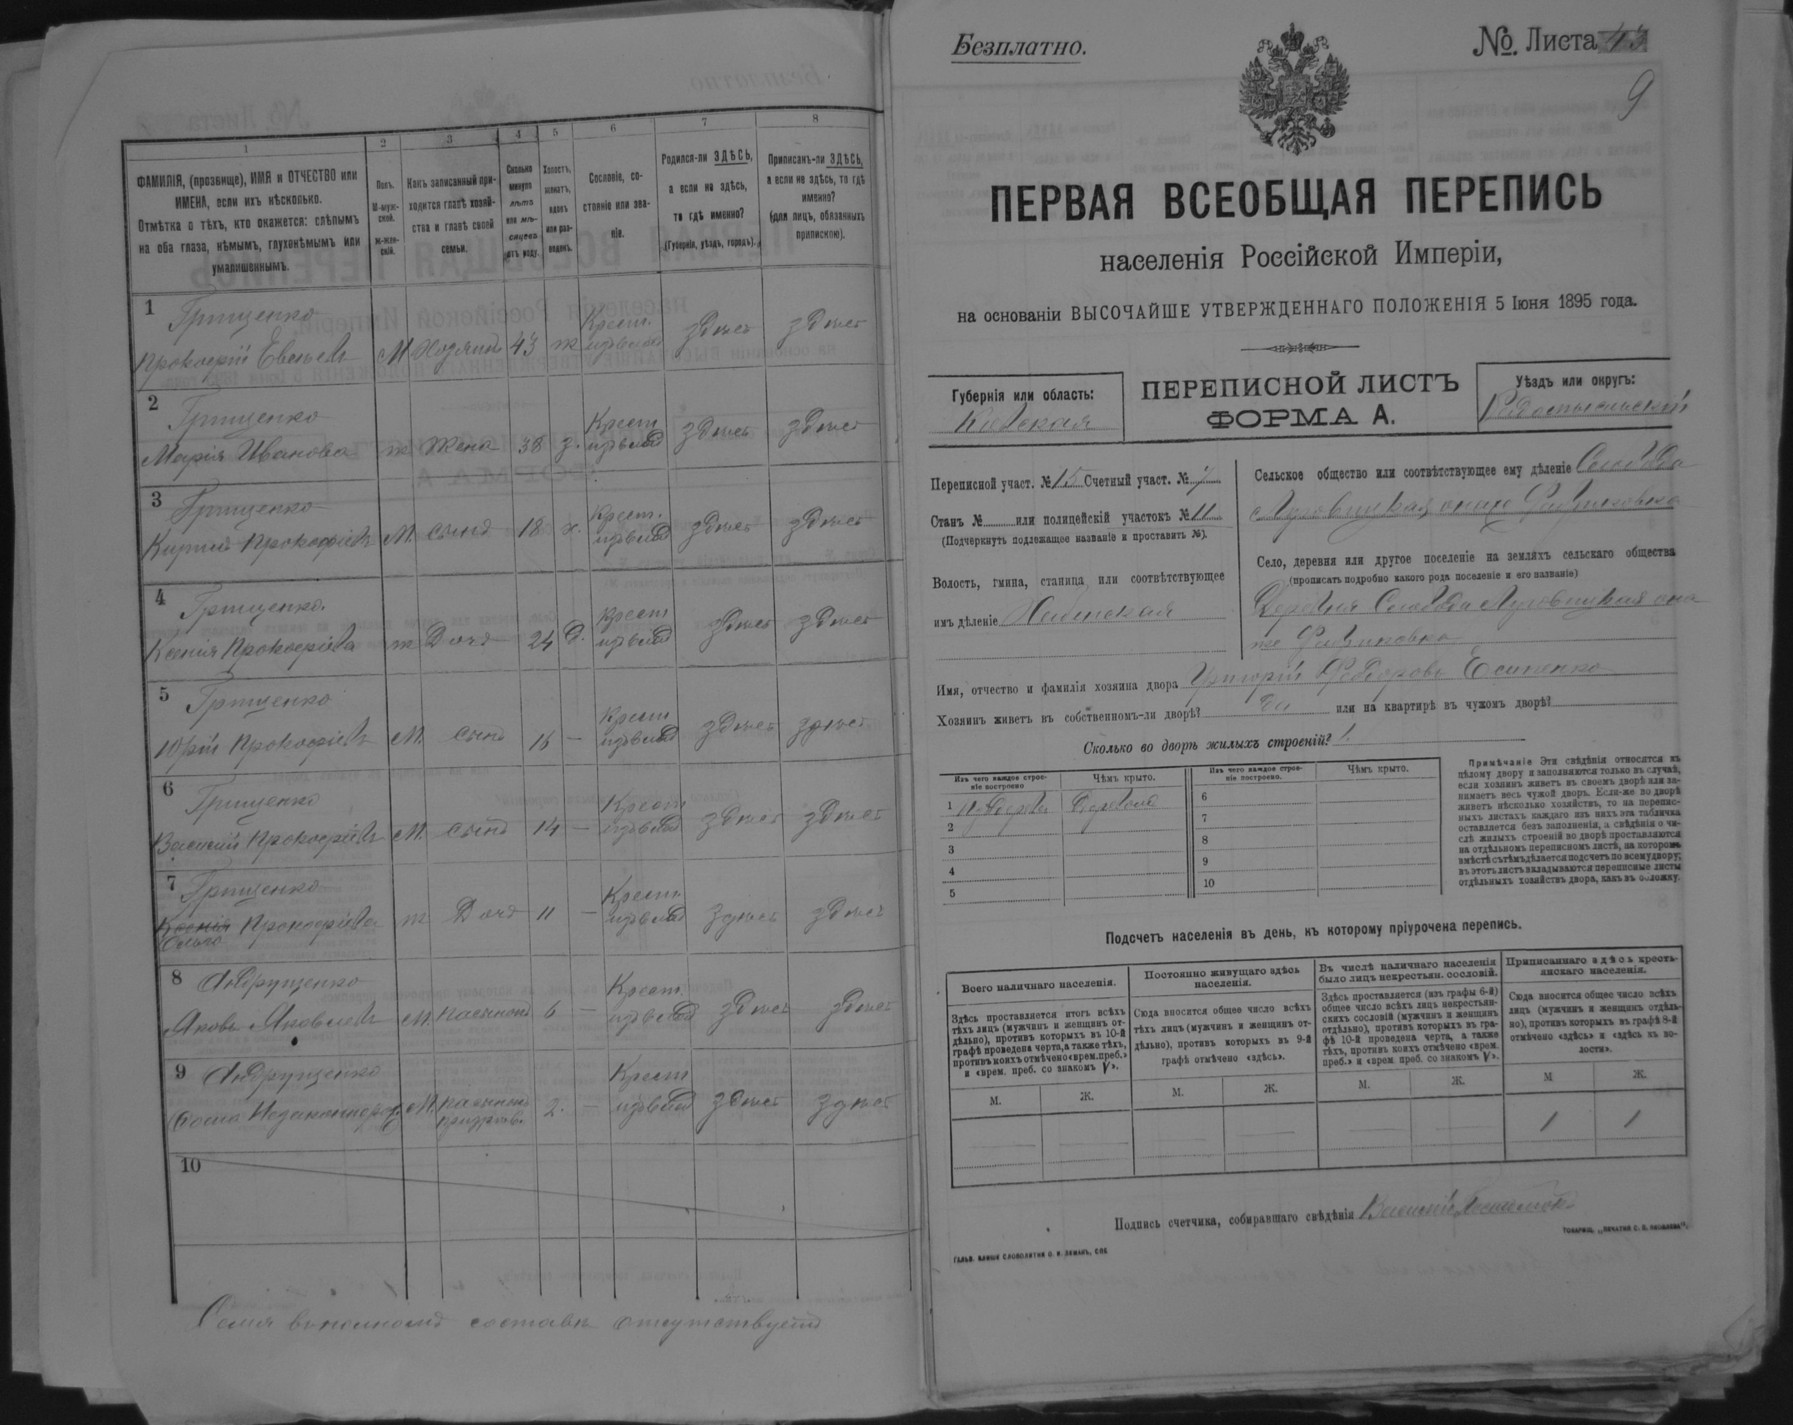 1
2
3
4
5
6
7
8
ФАМИЛІЯ, (прозвище), ИМЯ и ОТЧЕСТВО или
ИМЕНА, если ихъ нѣсколько.
Отмѣтка о тѣхъ, кто окажется: слѣпымъ
на оба глаза, нѣмымъ, глухонѣмымъ или
умалишеннымъ.
Полъ.
М-муж-
ской.
Ж-жен-
скій.
Какъ записанный при-
ходится главѣ хозяй-
ства и главѣ своей
семьи.
Сколько
минуло
лѣтъ
или мѣ-
сяцевъ
отъ роду.
Холостъ,
женатъ,
вдовъ
или раз-
веденъ.
Сословіе, со-
стояніе или зва-
ніе.
Родился-ли ЗДѢСЬ,
а если не здѣсь,
то гдѣ именно?
(Губернія, уѣздъ, городъ).
Приписанъ-ли ЗДѢСЬ,
а если не здѣсь, то гдѣ
именно?
(для лицъ, обязанныхъ
припискою).
1 Грищенко Крест.
Прокофій М Хозяинъ 43 ж здѣсь здѣсь
2 Грищенко Крест
Марія Иванова ж жена 38 з. здѣсь здѣсь
3 Грищенко Крест.
Прокофіевъ М. сынъ 18 х. здѣсь здѣсь
4 Грищенко. Крест
Ксенія Прокофіева ж Дочь 24 д. здѣсь здѣсь
5 Грищенко Крест
Юрій Прокофіевъ М. Сынъ 15 — здѣсь здѣсь
6 Грищенко Крест
Василий Прокофіевъ М. Сынъ 14 — здѣсь здѣсь
7 Грищенко Крест.
Ксенія Прокофіева ж Дочь 11 — здѣсь здѣсь
Ольга
8 Андрущенко Крест.
Яковъ Яковлевъ М. 6 — здѣсь здѣсь
9 Андрущенко Крест
М. 2. — здѣсь здѣсь
10
Семья въ полномъ составѣ отсутствуетъ
Безплатно.
№ Листа 43
9
ПЕРВАЯ ВСЕОБЩАЯ ПЕРЕПИСЬ
населенія Россійской Имперіи,
на основаніи ВЫСОЧАЙШЕ УТВЕРЖДЕННАГО ПОЛОЖЕНІЯ 5 Іюня 1895 года.
Губернія или область:
Кіевская
ПЕРЕПИСНОЙ ЛИСТЪ
ФОРМА А.
Уѣздъ или округъ:
Радомысльскій
Переписной участ. № 15 Счетный участ. №
Станъ № или полицейскій участокъ № 11
(Подчеркнуть подлежащее названіе и проставить №).
Волость, гмина, станица или соотвѣтствующее
имъ дѣленіе
Сельское общество или соотвѣтствующее ему дѣленіе Слобода
Луговицкая
Село, деревня или другое поселеніе на земляхъ сельскаго общества
(прописать подробно какого рода поселеніе и его названіе)
Деревня Слобода Луговицкая она
же
Имя, отчество и фамилія хозяина двора Григорій Федоровъ Есипенко
Хозяинъ живетъ въ собственномъ-ли дворѣ? да или на квартирѣ въ чужомъ дворѣ?
Сколько во дворѣ жилыхъ строеній? 1.
Изъ чего каждое строе-
ніе построено
Чѣмъ крыто.
Изъ чего каждое строе-
ніе построено.
Чѣмъ крыто.
1 Изъ дерева
2
3
4
5
6
7
8
9
10
Примѣчаніе Эти свѣдѣнія относятся къ
цѣлому двору и заполняются только въ случаѣ,
если хозяинъ живетъ въ своемъ дворѣ или за-
нимаетъ весь чужой дворъ. Если-же во дворѣ
живетъ нѣсколько хозяйствъ, то на перепис-
ныхъ листахъ каждаго изъ нихъ эта табличка
оставляется безъ заполненія, а свѣдѣнія о чи-
слѣ жилыхъ строеній во дворѣ проставляются
на отдѣльномъ переписномъ листѣ, на которомъ
вмѣстѣ съ тѣмъ дѣлается подсчетъ по всему двору;
въ этотъ листъ вкладываются переписные листы
отдѣльныхъ хозяйствъ двора, какъ въ обложку.
Подсчетъ населенія въ день, къ которому пріурочена перепись.
Всего наличнаго населенія.
Здѣсь проставляется итогъ всѣхъ
тѣхъ лицъ (мужчинъ и женщинъ от-
дѣльно), противъ которыхъ въ 10-й
графѣ проведена черта, а также тѣхъ,
противъ коихъ отмѣчено «врем. преб.»
и «врем. преб. со знакомъ V».
М. Ж.
Постоянно живущаго здѣсь
населенія.
Сюда вносится общее число всѣхъ
тѣхъ лицъ (мужчинъ и женщинъ от-
дѣльно), противъ которыхъ въ 9-й
графѣ отмѣчено «здѣсь».
М. Ж.
Въ числѣ наличнаго населенія
было лицъ некрестьян. сословій.
Здѣсь проставляется (изъ графы 6-й)
общее число всѣхъ лицъ некрестьян-
скихъ сословій (мужчинъ и женщинъ
отдѣльно), противъ которыхъ въ гра-
фѣ 10-й проведена черта, а также
тѣхъ, противъ коихъ отмѣчено «врем.
преб.» и «врем. преб. со знакомъ V».
М. Ж.
Приписаннаго здѣсь кресть-
янскаго населенія.
Сюда вносится общее число всѣхъ
лицъ (мужчинъ и женщинъ отдѣль-
но), противъ которыхъ въ графѣ 8-й
отмѣчено «здѣсь» и «здѣсь въ во-
лости».
М Ж.
1 1
Подпись счетчика, собиравшаго свѣдѣнія Василій
ГАЛЬВ. КЛИШЕ СЛОВОЛИТНИ О. И. ЛЕМАНЪ, СПБ.
ТОВАРИЩ. „ПЕЧАТНЯ С. П. ЯКОВЛЕВА“.